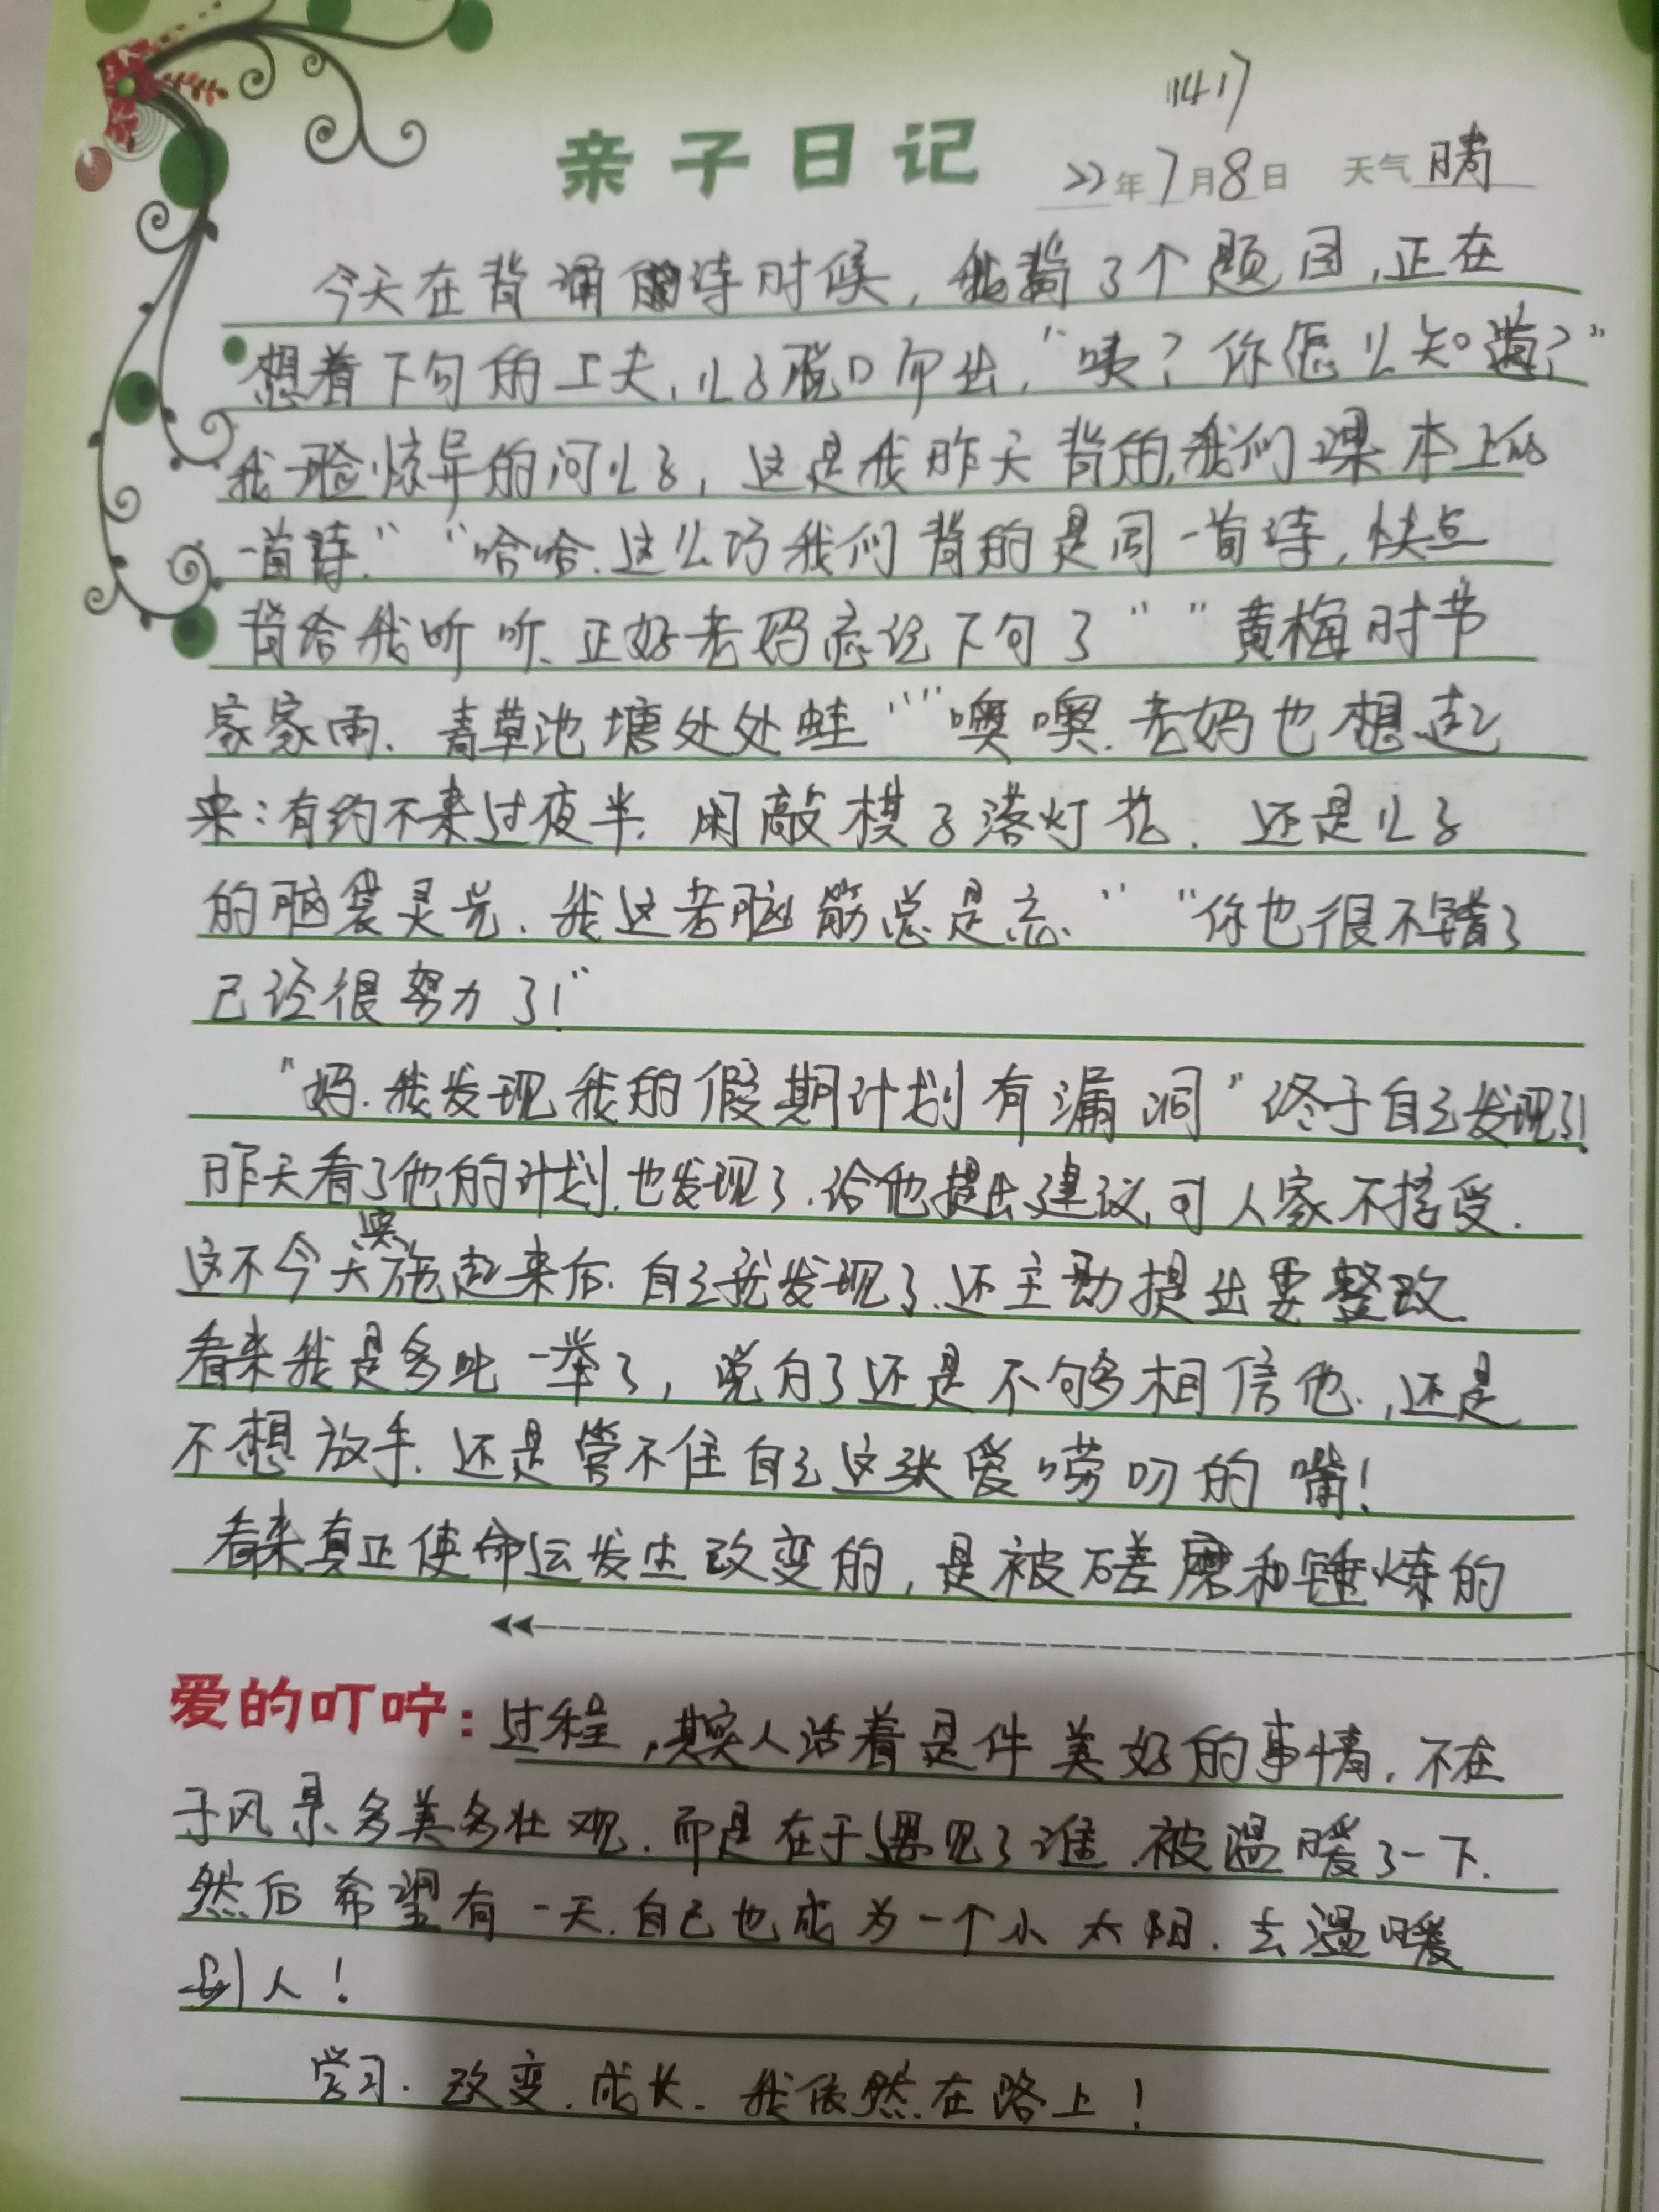 1417
亲子日记 22年7月8日 天气 晴
今天在背诵诗时候，我背了个题目，正在
想着下句的工夫，儿子脱口而出，“咦？你怎么知道？”
我一脸惊异的问儿子，这是我昨天背的，我们课本上的
一首诗.”“哈哈.这么巧我们背的是同一首诗，快点
背给我听听、正好老妈忘记下句了”“黄梅时节
家家雨、青草池塘处处蛙”“噢噢.老妈也想起
来：有约不来过夜半、闲敲棋子落灯花.还是儿子
的脑袋灵光、我这老脑筋总是忘、”“你也很不错了
已经很努力了！”
“妈.我发现我的假期计划有漏洞”终于自己发现了！
昨天看了他的计划.也发现了.给他提出建议,可人家不接受.
这不今天实施起来后.自己就发现了.还主动提出要整改.
看来我是多此一举了，说白了还是不够相信他.,还是
不想放手.还是管不住自己这张爱唠叨的嘴！
看来真正使命运发生改变的，是被磋磨和锤炼的
爱的叮咛：过程，其实人活着是件美好的事情.不在
于风景多美多壮观.而是在于遇见了谁.被温暖了一下.
然后希望有一天.自己也成为一个小太阳.去温暖
别人！
学习.改变.成长.我依然在路上！